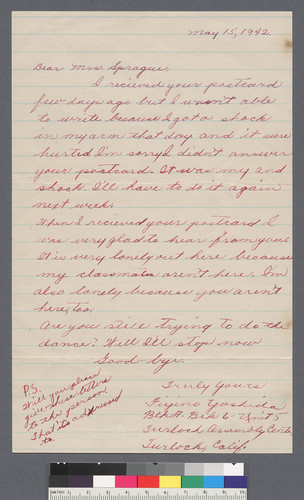 May 15, 1942
Dear Mrs. Sprague,
I recieved your postcard
few days ago but I wasn't able
to write because I got a shock
in my arm that day and it sure
hurted I'm sorry I didn't answer
your postcard. It was my 2nd
shock. I'll have to do it again
next week.
When I recieved your postcard I
was very glad to hear from you.
It is very lonely out here because
my classmates aren't here. I'm
also lonely because you aren't
here, too.
Are you still trying to do the
dance? Well I'll stop now
Good-bye.
Truly Yours
Yoshida
Unit 5
Turlock Assembly Center
Turlock, Calif.
P.S.
Will you please
give these letters
to the person
that its addressed
to.